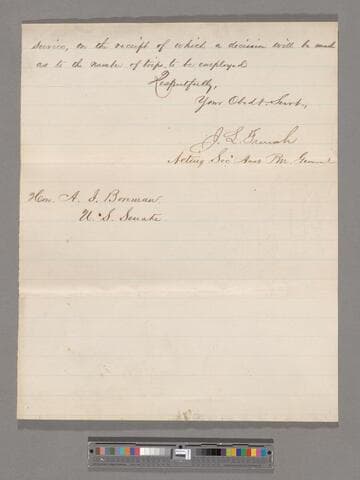 service, on the receipt of which a decision will be made
as to the number of trips, to be employed
Respectfully,
Your Obdt. Servt.,
J. L. French
Acting Sec<sup>d</sup> Asst P.M. General
Hon. A. I. Boreman
U. S. Senate